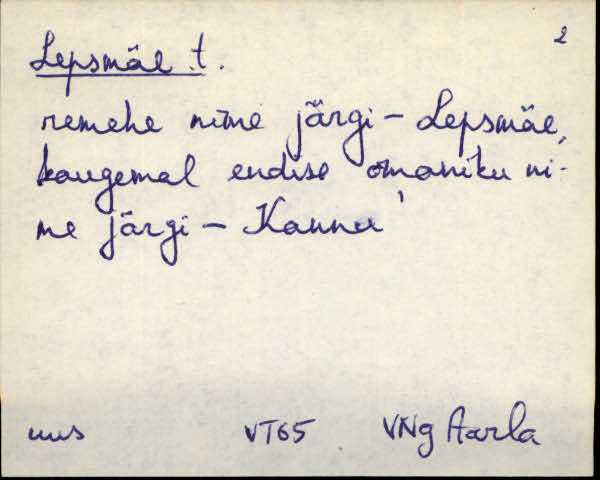 2
Lepsmäe t.
remehe nime järgi – Lepsmäe,
kaugemal endise omaniku ni-
me järgi – Kannu
uus VT65 VNg Aarla